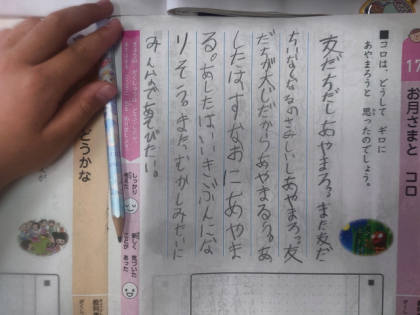 17
お月さまと コロ
■コロは、どうして ギロに
あやまろうと 思ったのでしょう。
友だちだしあやまろう。まだ友だ
ちいなくなるのさみしいしあやまろう。友
だちが大じだからあやまるう。あ
したは、すなおにあやま
る。あしたは、いいきぶんにな
りそう。またむかしみたいに
みんなであそびたい。
しっかり
考えた
新しく 気づいた
ことが
あった
どうかな